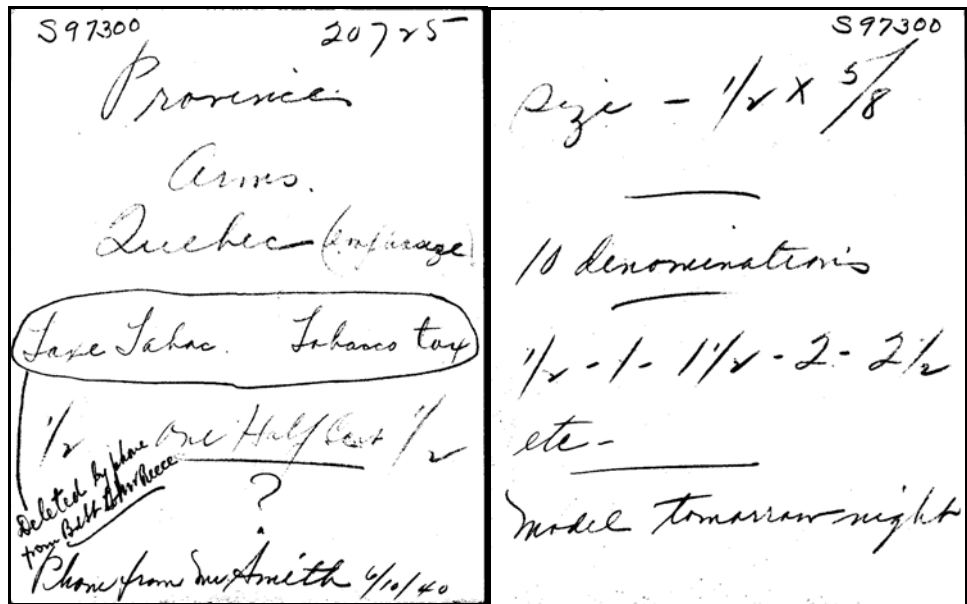 S97300 20725
Province
Arms.
Quebec (en visage)
Taxe Tabac. Tobacco tax
1/2 One Half Cent 1/2
Deleted by phone
from BABN to Mr Reece
?
Phone from Mr Smith 6/10/40
S97300
Size - 1/2 X 5/8
10 denominations
1/2 - 1 - 1 1/2 - 2 - 2 1/2
etc -
Model tomorrow night